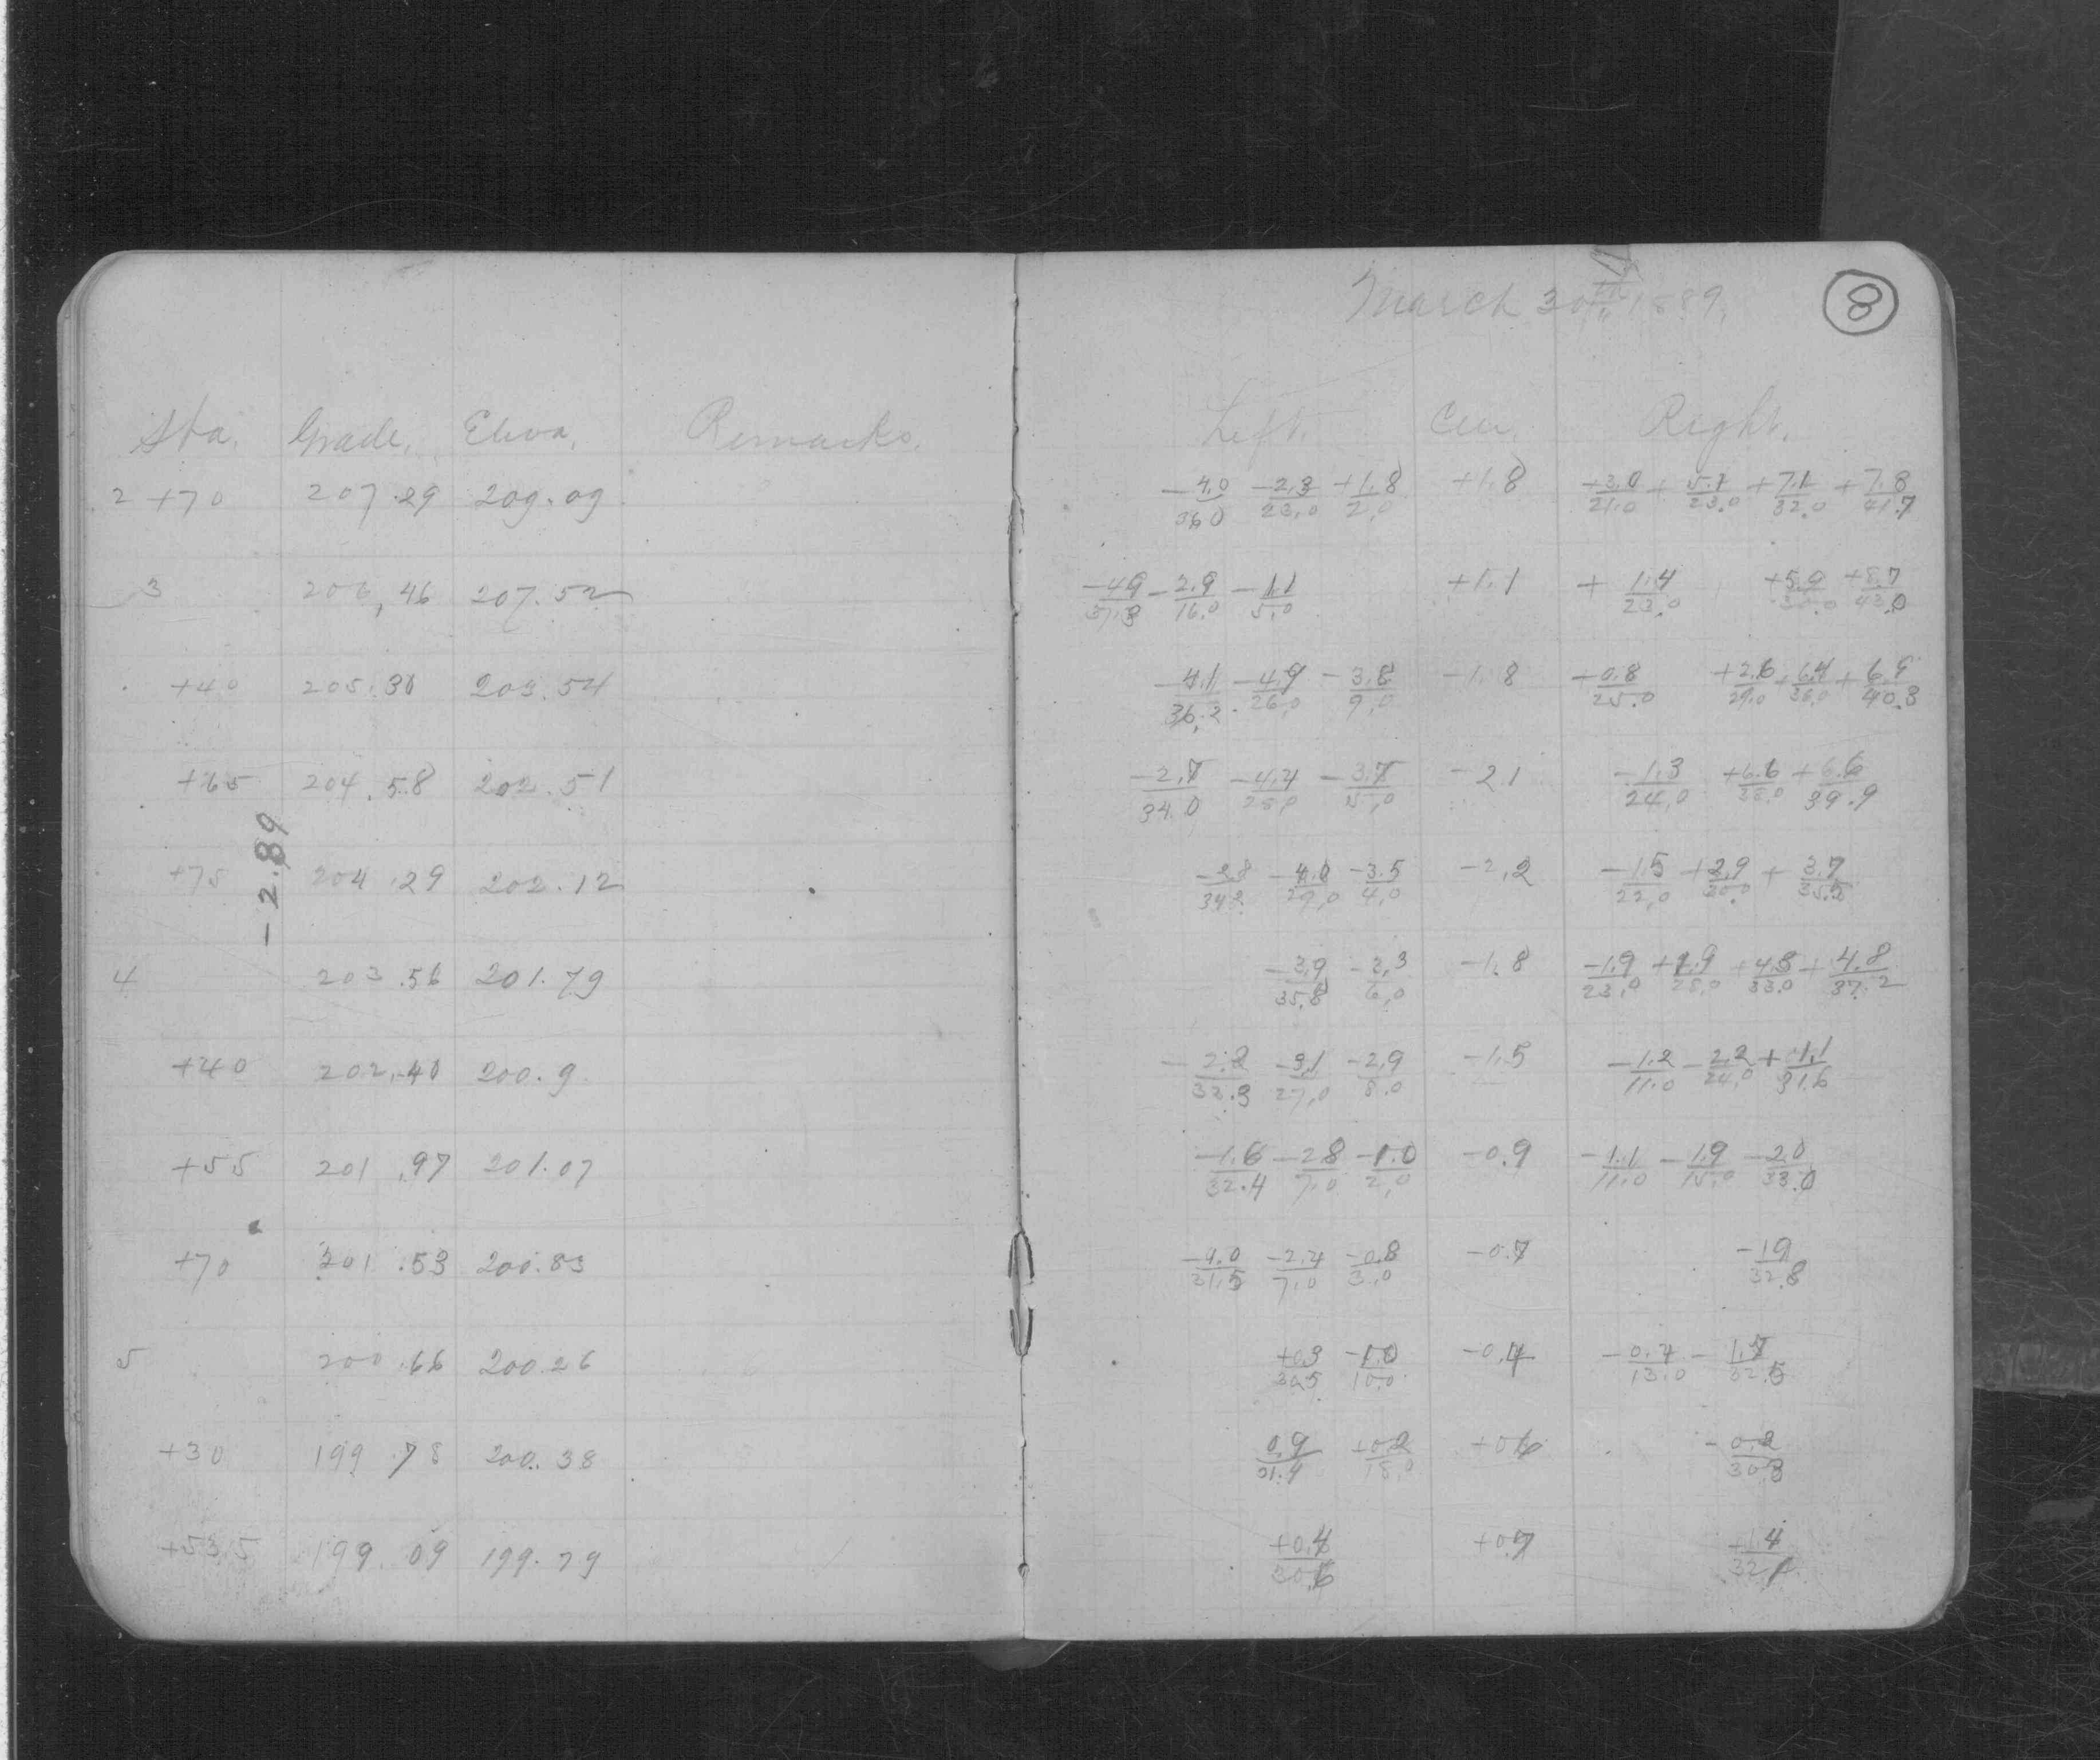 March 30th 1889.
8
Sta. Grade. Eleva. Remarks. Left. Cen. Right.
2 +70 207.29 209.09 -4.0/36.0 -2.3/23.0 +1.8/2.0 +1.8 +3.0/21.0 + 5.7/23.0 +7.1/32.0 +7.8/41.7
3 206.46 207.52 -4.9/37.3 -2.9/16.0 -1.1/5.0 +1.1 +1.4/23.0 +5.9/30.0 +8.7/43.0
+40 205.31 203.54 -4.1/36.2 -4.9/26.0 -3.8/9.0 -1.8 +0.8/25.0 +2.6/29.0 +6.4/36.0 +6.9/40.3
+65 204.58 202.51 -2.7/34.0 -4.4/25.0 -3.7/15.0 -2.1 -1.3/24.0 +6.6/38.0 +6.6/39.9
-2.89
+75 204.29 202.12 -2.8/34.2 -4.0/29.0 -3.5/4.0 -2.2 -1.5/22.0 +2.9/30.0 +3.7/35.5
4 203.56 201.79 -3.9/35.8 -2.3/6.0 -1.8 -1.9/23.0 +1.9/28.0 +4.8/33.0 +4.8/37.2
+40 202.40 200.9 -2.2/33.3 -3.1/27.0 -2.9/8.0 -1.5 -1.2/11.0 -2.2/24.0 +1.1/31.6
+55 201.97 201.07 -1.6/32.4 -2.8/7.0 -1.0/2.0 -0.9 -1.1/11.0 -1.9/15.0 -2.0/33.0
+70 201.53 200.83 /31.5 -2.4/7.0 -0.8/3.0 -0.7 -1.9/32.8
5 200.66 200.26 +0.3/30.5 -1.0/10.0 -0.4 -0.4/13.0 -1.7/32.5
+30 199.78 200.38 0.9/31.4 +0.2/15.0 +0.6 -0.2/30.3
+53.5 199.09 199.79 +0.4/30.6 +0.7 +1.4/32.1